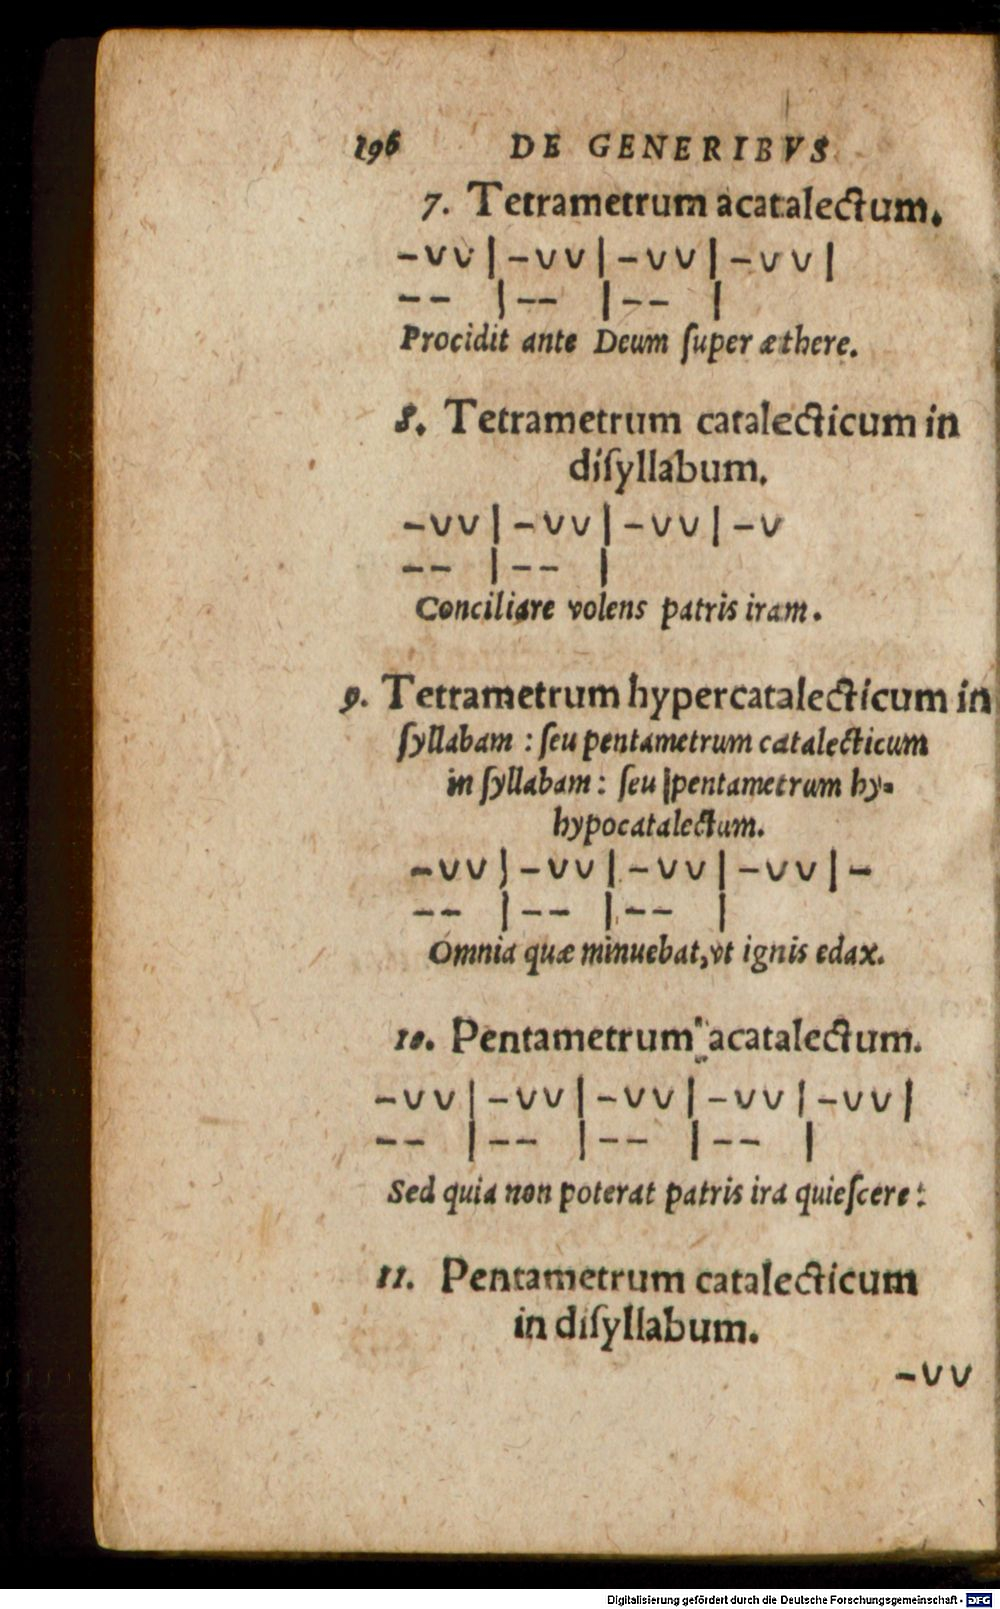 196 DE GENERIBVS
7. Tetrametrum acatalectum.
-vv | -vv | -vv | -vv |
-- | -- | -- |
Procidit ante Deum ſuper æthere.
8. Tetrametrum catalecticum in
diſyllabum.
-vv | -vv | -vv | -v
-- | -- |
Conciliare volens patris iram.
9. Tetrametrum hypercatalecticum in
ſyllabam : ſeu pentametrum catalecticum
in ſyllabam : ſeu pentametrum hy-
hypocatalectum.
-vv | -vv | -vv | -vv | -
-- | -- | -- |
Omnia quæ minuebat, vt ignis edax.
10. Pentametrum acatalectum.
-vv | -vv | -vv | -vv | -vv |
-- | -- | -- | -- |
Sed quia non poterat patris ira quieſcere:
11. Pentametrum catalecticum
in diſyllabum.
-vv
Digitalisierung gefördert durch die Deutsche Forschungsgemeinschaft - DFG